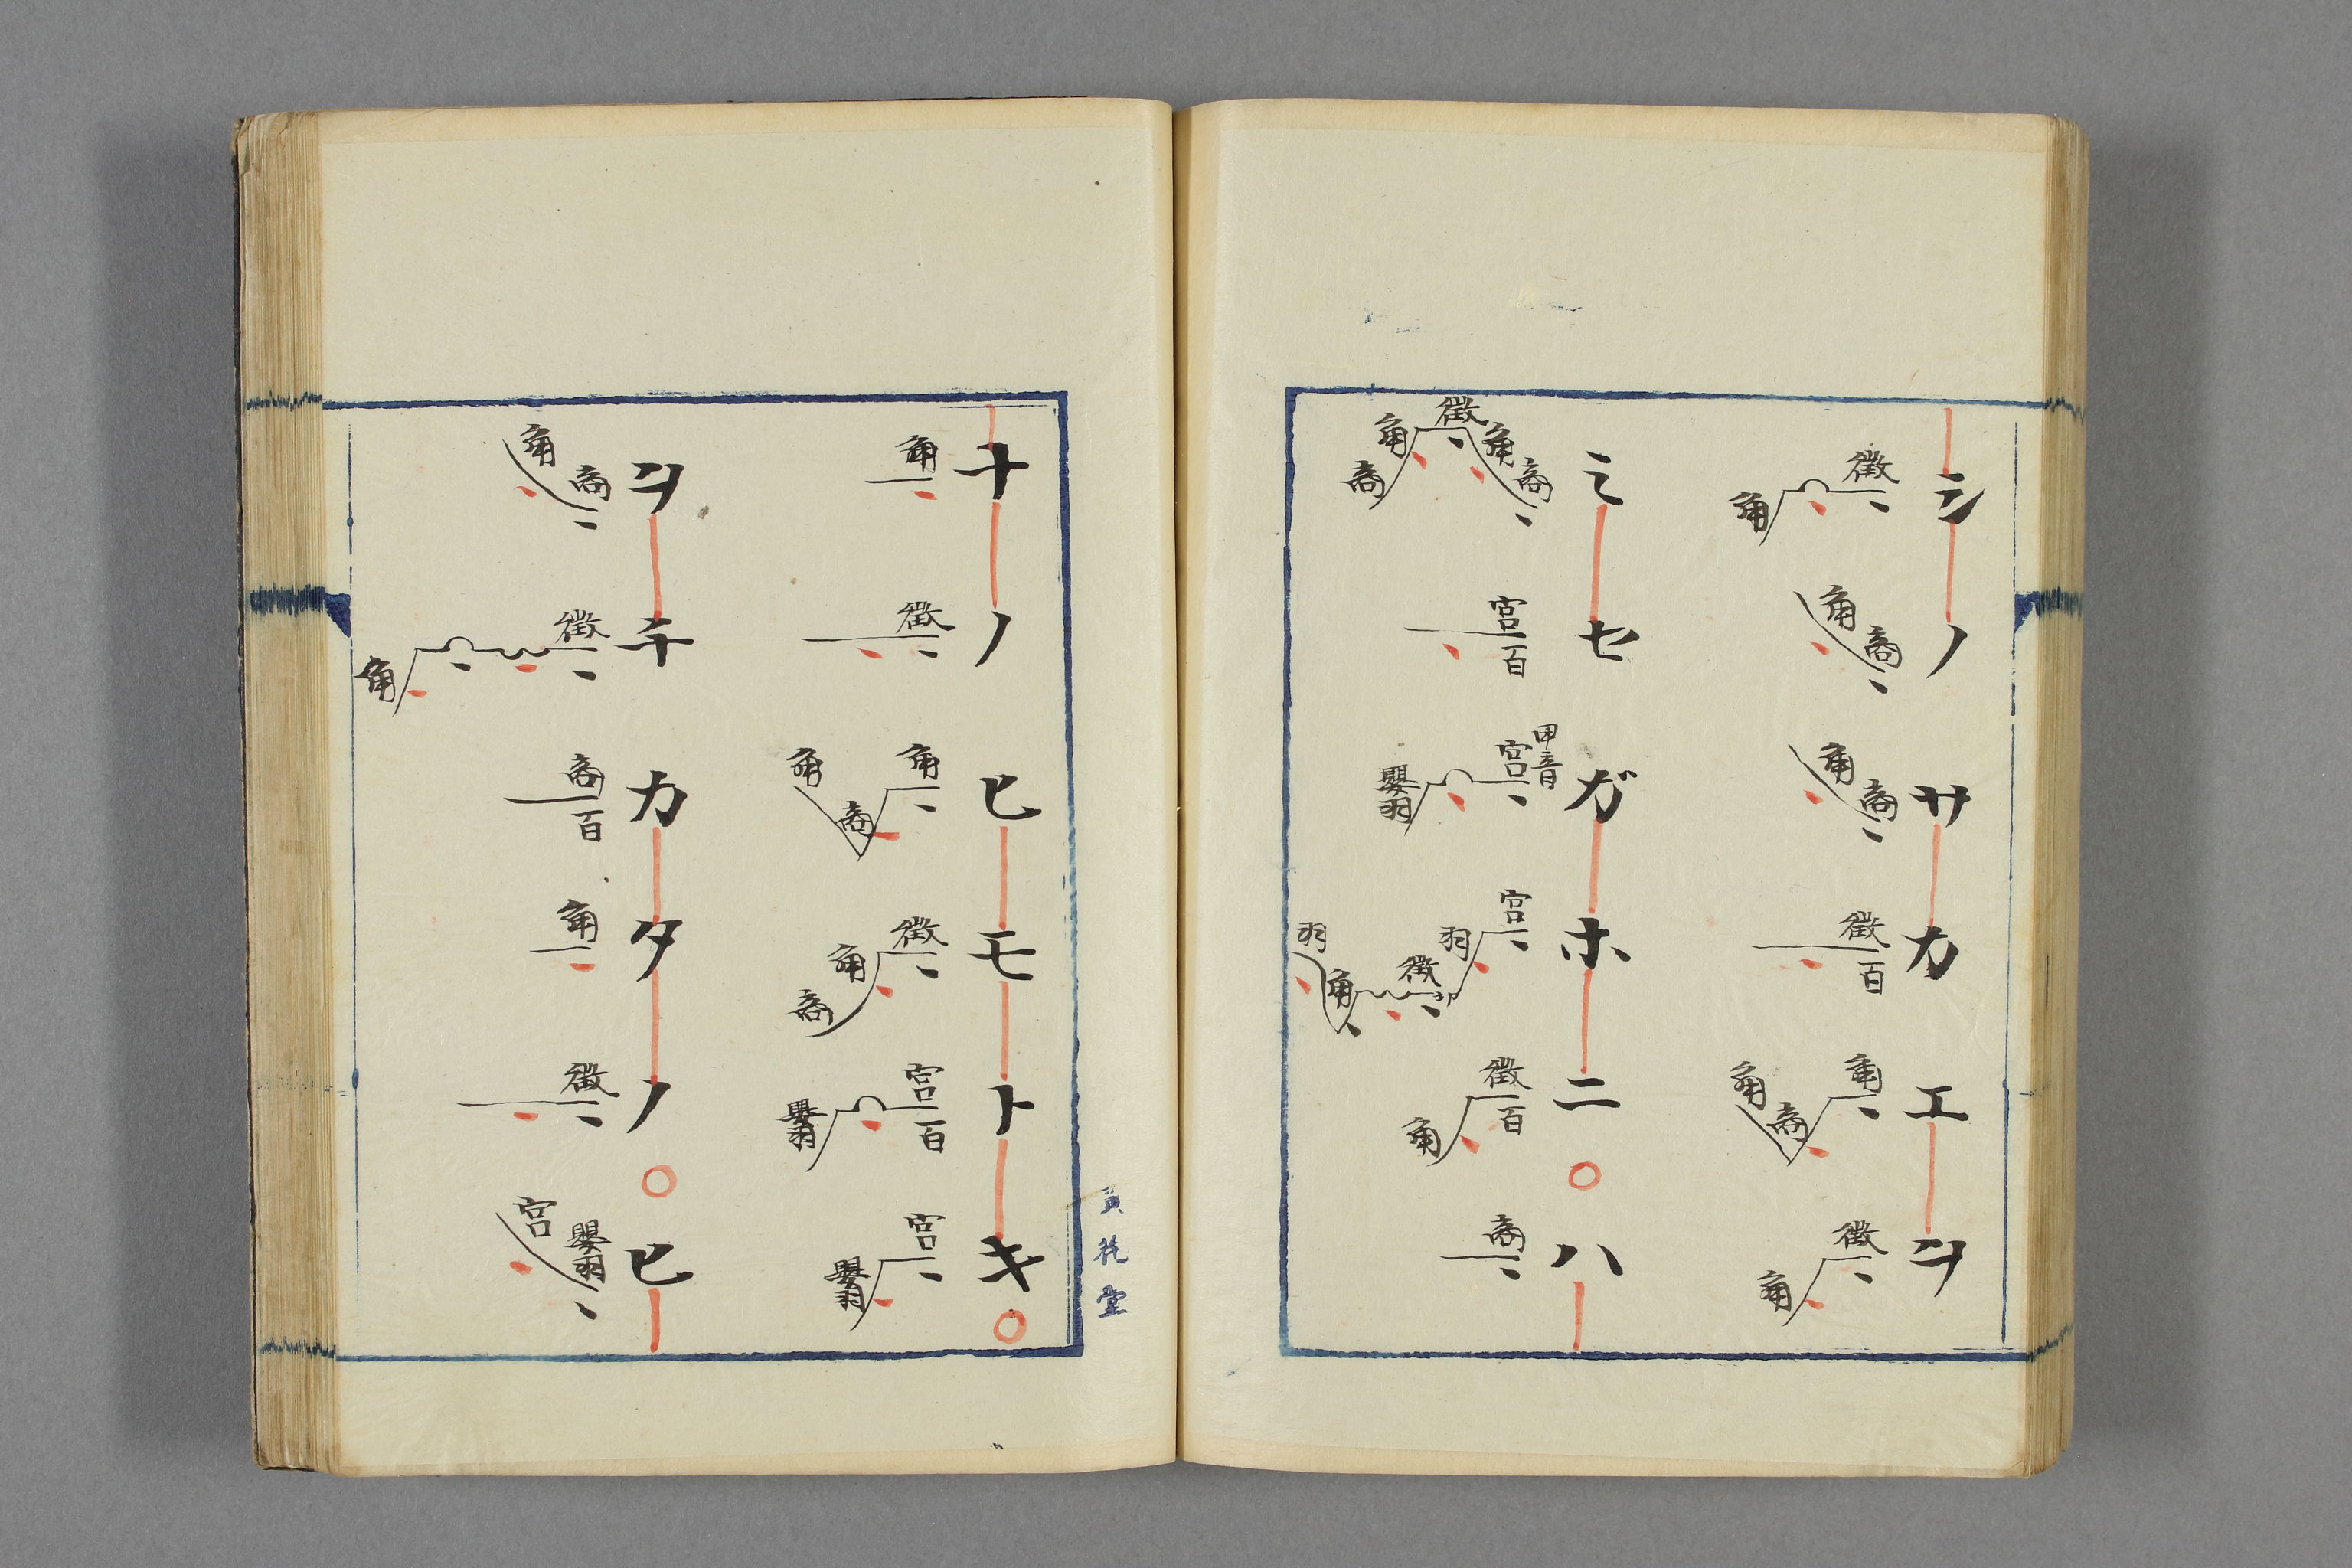 シノサカエヲ
徴角
角商
角商
徴百
角商角
徴角
ミセガホニ○ハ
商角徴角商
宮百
甲音
宮嬰羽
宮羽徴角羽
徴百角
商
ナノヒモトキ○
角
徴
角商角
徴角商
宮百嬰羽
宮嬰羽
ヲチカタノ○ヒ
商角
徴角
商百
角
徴
嬰羽宮